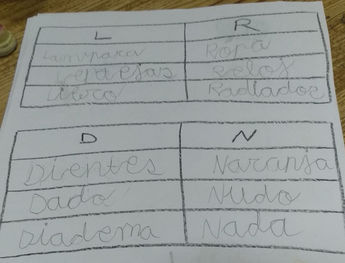 L R
Lampara Ropa
Lentejas Reloj
Libro Radiador
D N
Dientes Naranja
Dado Nudo
Diadema Nada